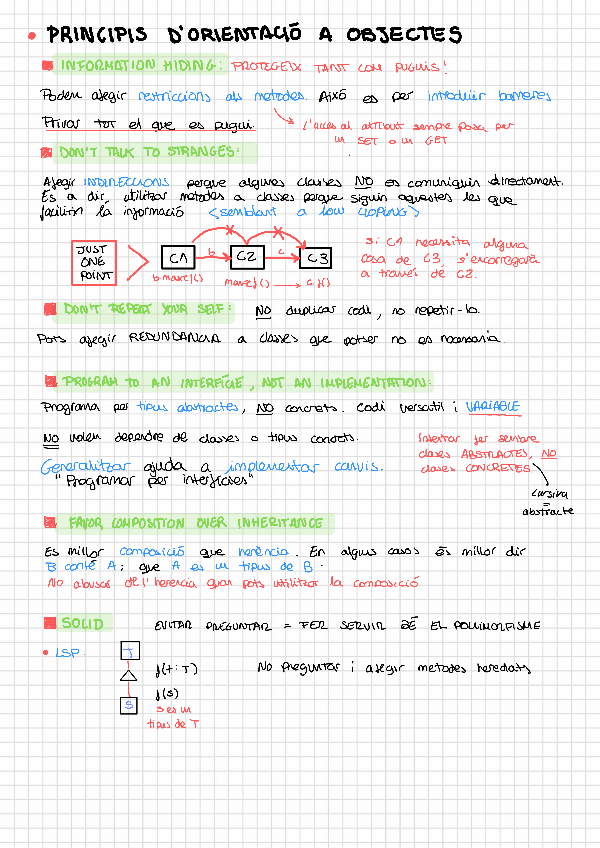 • PRINCIPIS D'ORIENTACIÓ A OBJECTES
INFORMATION HIDING: PROTEGEIX TANT COM PUGUIS!
Podem afegir restriccions als metodes. Això es per introduir barreres
Privar TOT el que es pugui.
L'acces al atribut sempre passa per
un SET o un GET
DON'T TALK TO STRANGES:
Afegir INDIRECCIONS perque algunes classes NO es comuniquin directament.
Es a dir, utilitzar metodes a classes perque siguin aquestes les que
facilitin la informació <semblant a low coping>
JUST
ONE
POINT
C1
b
C2
c
C3
b.maref()
maref()
c.f()
Si C1 necessita alguna
cosa de C3, s'encorregarà
a través de C2.
DON'T REPEAT YOUR SELF: NO duplicar codi, no repetir-lo.
Pots afegir REDUNDANCIA a classes que potser no es necessaria.
PROGRAM TO AN INTERFICIE, NOT AN IMPLEMENTATION:
Programa per tipus abstractes, NO concrets. Codi versatil i VARIABLE
NO volem dependre de classes o tipus concrets.
Generalitzar ajuda a implementar canvis.
"Programar per interficies"
Intentar fer sempre
classes ABSTRACTES, NO
classes CONCRETES
cursiva
=
abstracte
FAVOR COMPOSITION OVER INHERITANCE
Es millor composició que herència. En alguns casos és millor dir
B conté A; que A es un tipus de B.
No abusos de l'herencia quan pots utilitzar la composició
SOLID
EVITAR PREGUNTAR = FER SERVIR BÉ EL POLIMORFISME
• LSP:
T
f(t:T)
f(s)
S
S es un
tipus de T
No Preguntar i afegir metodes heredats